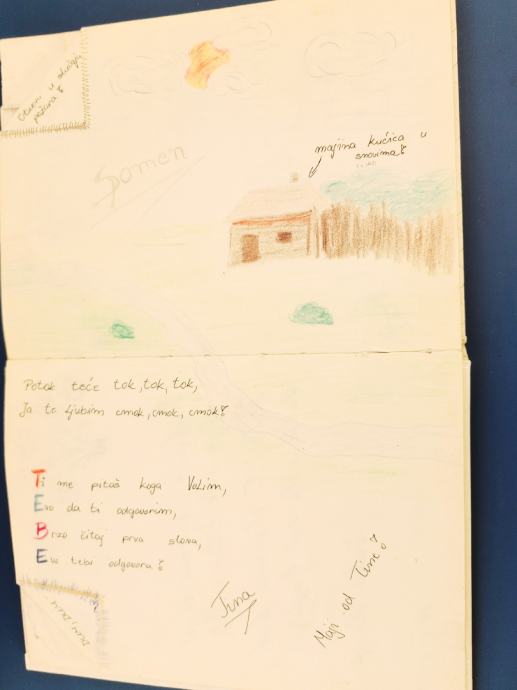 Otvori u slučaju
požara!
Spomen
majina kućica u
snovima!
Potok teče tok, tok, tok,
Ja te ljubim cmok, cmok, cmok!
Ti me pitaš koga Volim,
Evo da ti odgovorim,
Brzo čitaj prva slova,
Eto tebi odgovora!
Tina
Maji od Tine!